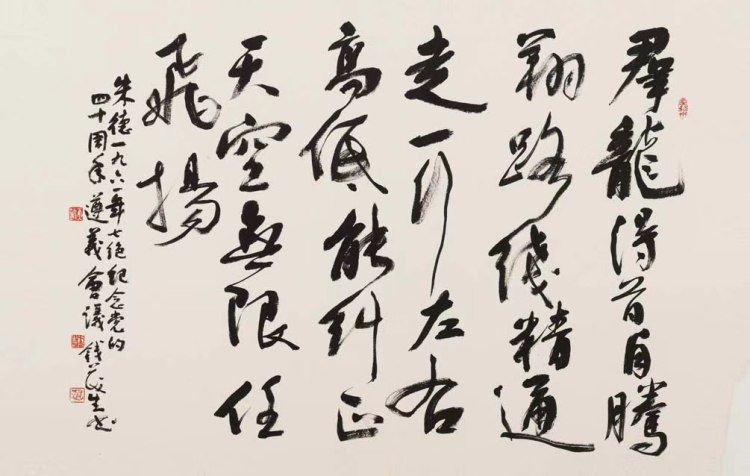 群龍得首自騰
翔路綫精通
走一行左右
高低能糾正
天空無限任
飛揚
朱德一九六一年七絕紀念党的
四十周年遵義會議 錢茂生书